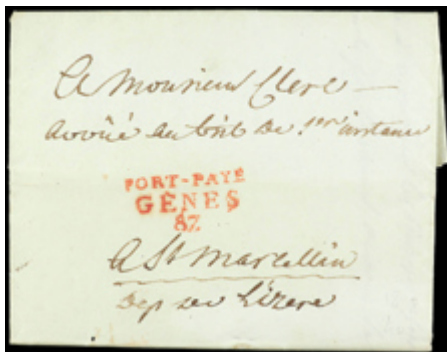 A Monsieur Clerc
avoüé au trib de 1er instance
PORT-PAYÉ
GÊNES
87
A St Marcellin
Dep de L'izere